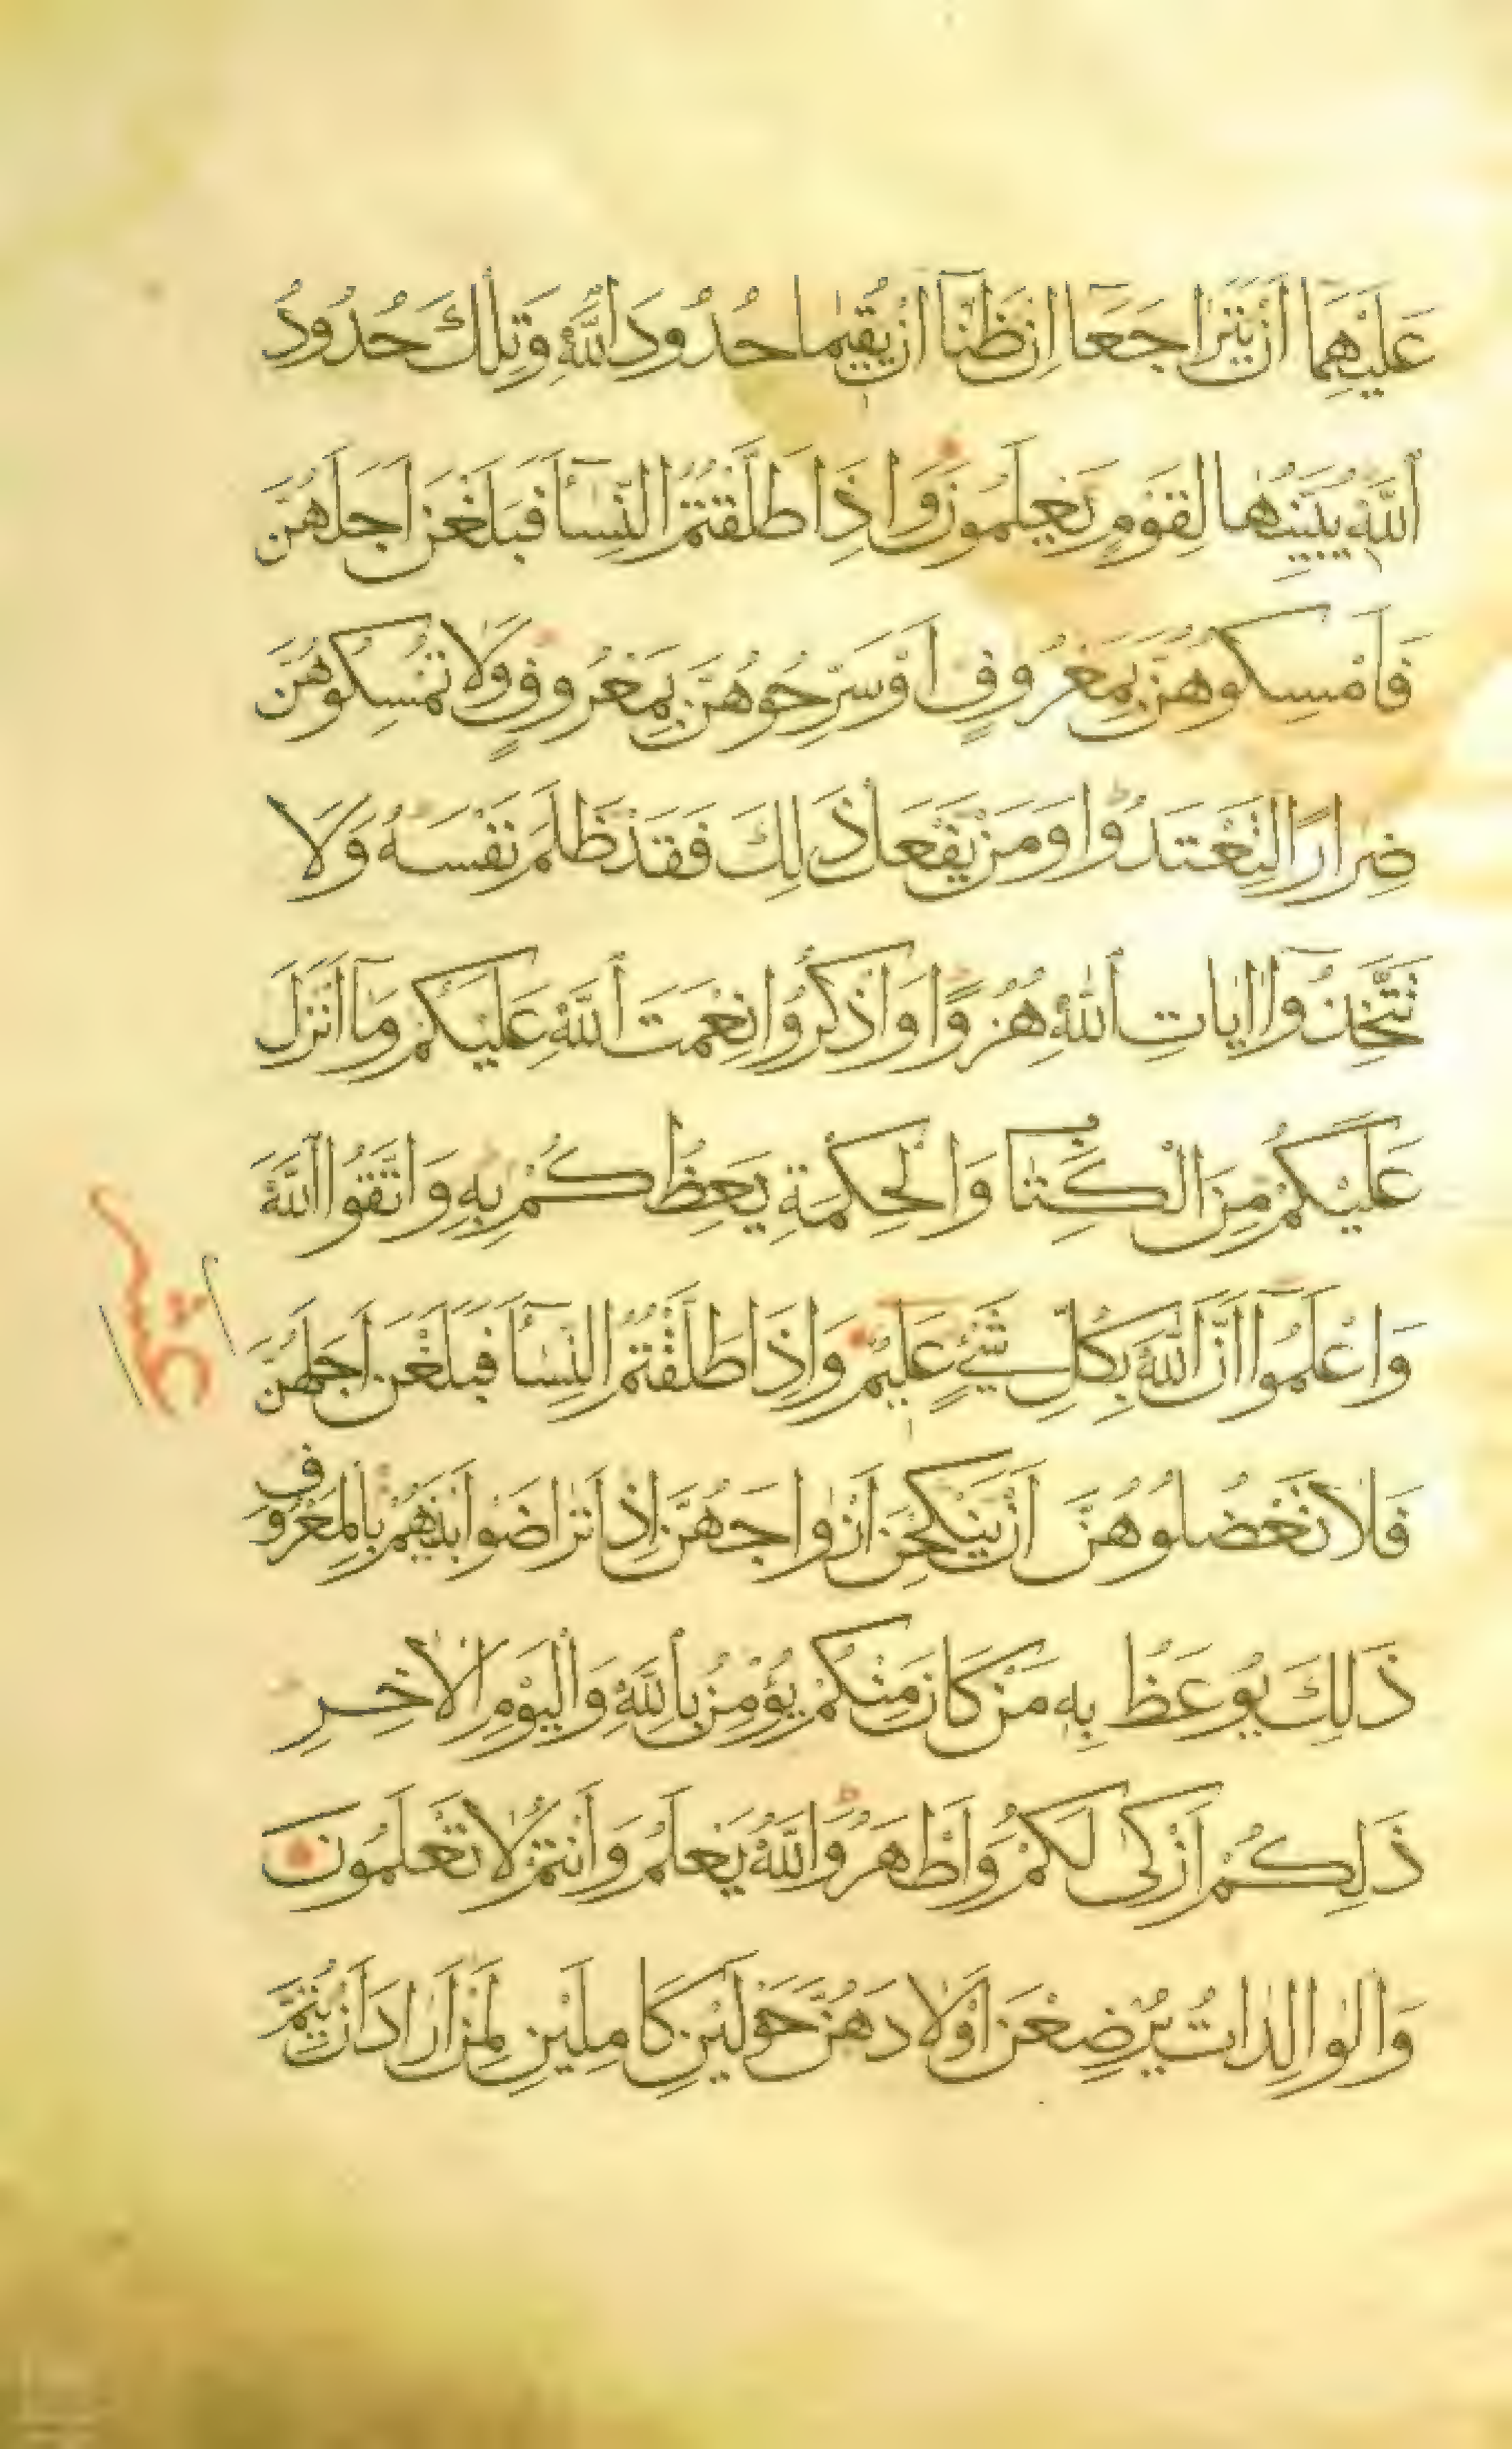 عَلَيْهِمَا أَنْ يَتَرَاجَعَا إِنْ ظَنَّا أَنْ يُقِيمَا حُدُودَ اللَّهِ وَتِلْكَ حُدُودُ
اللَّهِ يُبَيِّنُهَا لِقَوْمٍ يَعْلَمُونَ وَإِذَا طَلَّقْتُمُ النِّسَاءَ فَبَلَغْنَ أَجَلَهُنَّ
فَأَمْسِكُوهُنَّ بِمَعْرُوفٍ أَوْ سَرِّحُوهُنَّ بِمَعْرُوفٍ وَلَا تُمْسِكُوهُنَّ
ضِرَارًا لِتَعْتَدُوا وَمَنْ يَفْعَلْ ذَلِكَ فَقَدْ ظَلَمَ نَفْسَهُ وَلَا
تَتَّخِذُوا آيَاتِ اللَّهِ هُزُوًا وَاذْكُرُوا نِعْمَتَ اللَّهِ عَلَيْكُمْ وَمَا أَنْزَلَ
عَلَيْكُمْ مِنَ الْكِتَابِ وَالْحِكْمَةِ يَعِظُكُمْ بِهِ وَاتَّقُوا اللَّهَ
وَاعْلَمُوا أَنَّ اللَّهَ بِكُلِّ شَيْءٍ عَلِيمٌ وَإِذَا طَلَّقْتُمُ النِّسَاءَ فَبَلَغْنَ أَجَلَهُنَّ
فَلَا تَعْضُلُوهُنَّ أَنْ يَنْكِحْنَ أَزْوَاجَهُنَّ إِذَا تَرَاضَوْا بَيْنَهُمْ بِالْمَعْرُوفِ
ذَلِكَ يُوعَظُ بِهِ مَنْ كَانَ مِنْكُمْ يُؤْمِنُ بِاللَّهِ وَالْيَوْمِ الْآخِرِ
ذَلِكُمْ أَزْكَى لَكُمْ وَأَطْهَرُ وَاللَّهُ يَعْلَمُ وَأَنْتُمْ لَا تَعْلَمُونَ
وَالْوَالِدَاتُ يُرْضِعْنَ أَوْلَادَهُنَّ حَوْلَيْنِ كَامِلَيْنِ لِمَنْ أَرَادَ أَنْ يُتِمَّ